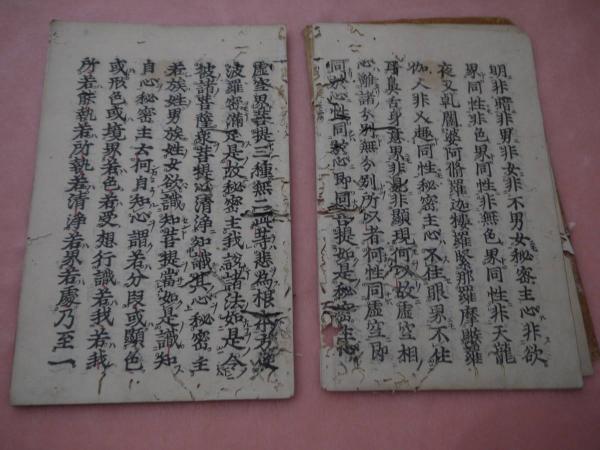 明非暗非男非女非不男女秘密主心非欲
界同性非色界同性非無色界同性非天龍
夜叉乹闥婆阿脩羅迦樓羅緊那羅摩睺羅
伽人非人趣同性秘密主心不住眼界不住
耳鼻舌身意界非見非顯現何以故虛空相
心離諸分別無分別所以者何性同虛空即
同於心性同於心即同菩提如是秘密主心
虛空界菩提三種無二此等悲為根本方便
波羅密滿足是故秘密主我說諸法如是令
彼諸菩薩衆菩提心清淨知識其心秘密主
若族姓男族姓女欲識知菩提當如是識知
自心秘密主云何自知心謂若分段或顯色
或形色或境界若色若受想行識若我若我
所若能執若所執若清淨若界若處乃至一